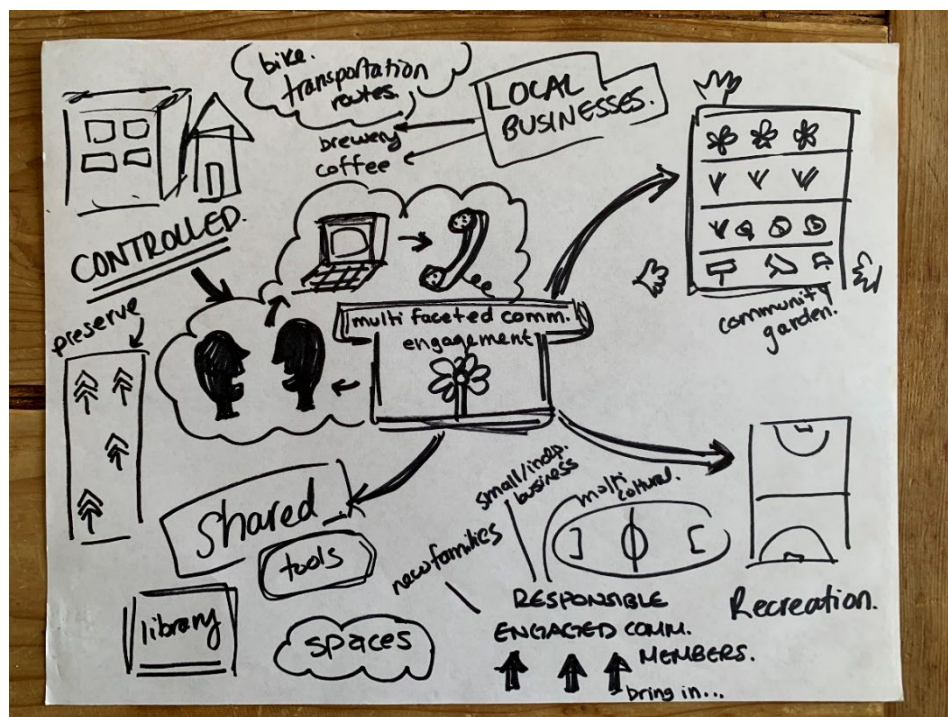 bike.
transportation
routes.
LOCAL
BUSINESSES.
brewery
coffee
CONTROLLED.
preserve
multi faceted comm.
engagement
community
garden.
Shared
tools
library
spaces
new families
small/indp.
business
multi
cultural.
RESPONSIBLE
ENGAGED COMM.
MEMBERS.
bring in...
Recreation.